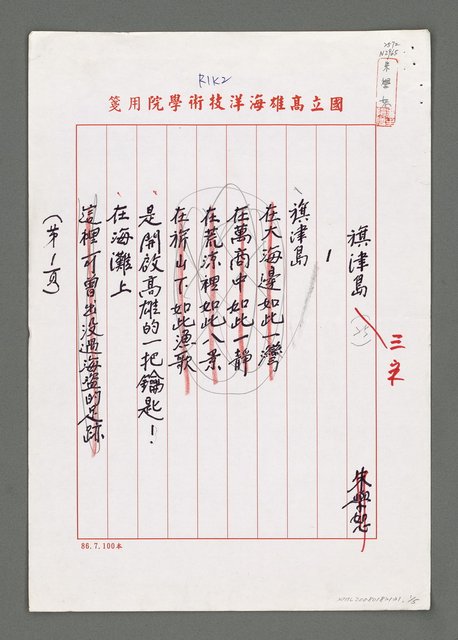 R1K2
國立高雄海洋技術學院用箋
旗津島
三宋
朱學恕
1
旗津島
在大海邊如此一灣
在萬商中如此一靜
在荒涼裡如此八景
在旂山下如此漁歌
是開啟高雄的一把鑰匙!
在海灘上
這裡可曾出没過海盜的足跡
(第1頁)
86.7.100本